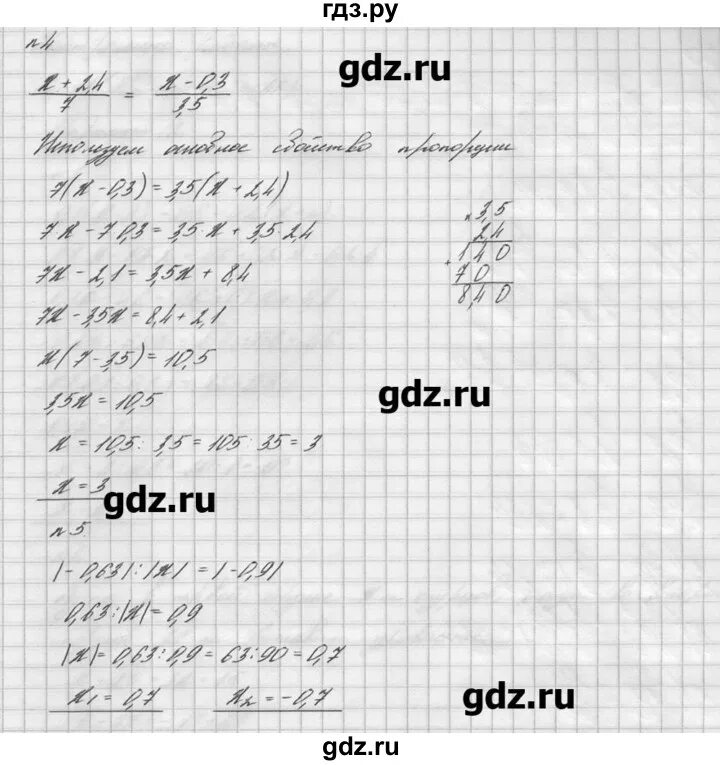 гдз.ру
n 4.
gdz.ru
(x + 2,4)/7 = (x - 0,3)/3,5
Используем основное свойство пропорции
7(x - 0,3) = 3,5(x + 2,4)
7·x - 7·0,3 = 3,5·x + 3,5·2,4
7x - 2,1 = 3,5x + 8,4
7x - 3,5x = 8,4 + 2,1
x(7 - 3,5) = 10,5
3,5x = 10,5
x = 10,5 : 3,5 = 105 : 35 = 3
x = 3
× 3,5
2,4
+ 140
70
8,40
gdz.ru
gdz.ru
n 5.
|-0,63| : |x| = |-0,9|
0,63 : |x| = 0,9
|x| = 0,63 : 0,9 = 63 : 90 = 0,7
x₁ = 0,7 x₂ = -0,7
gdz.ru
gdz.ru